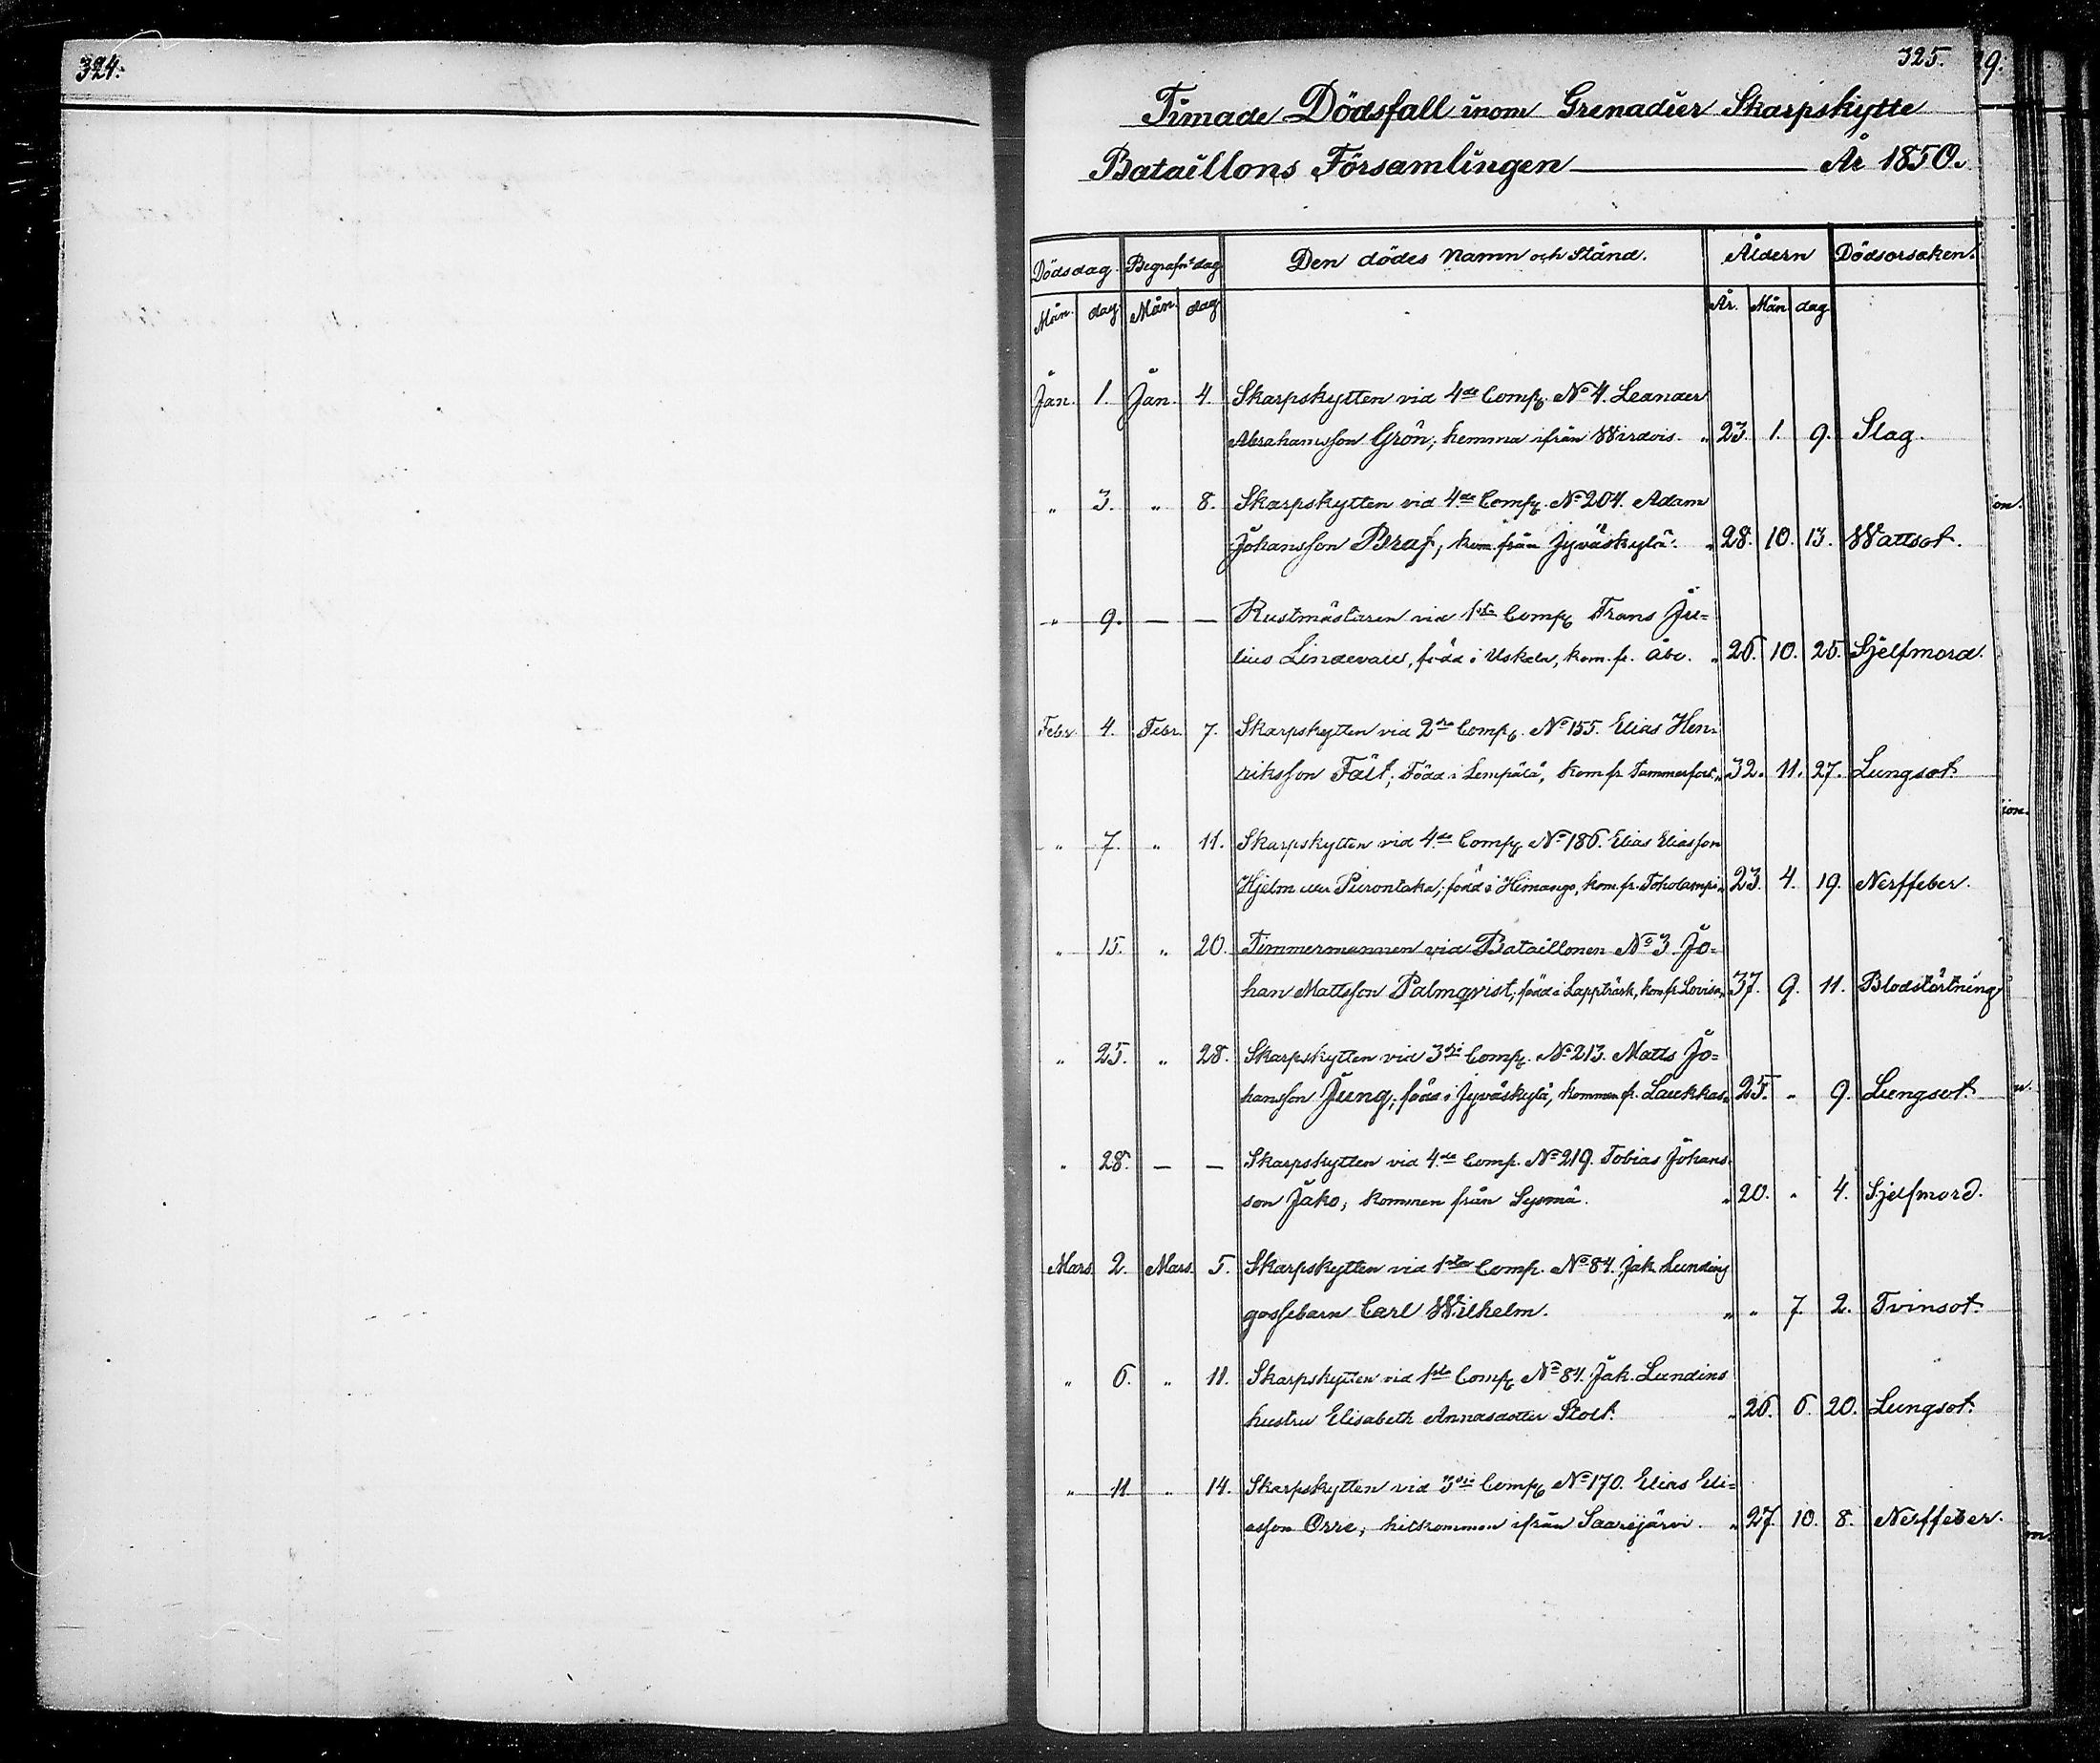 324.
325.
Timade Dödsfall inom Grenadier Skarpskytte
Bataillons Församlingen År 1850.
Dödsdag. Begrafn:s dag Den dödes Namn och Stånd. Åldern Dödsorsaken.
Mån. dag. Mån. dag År. Mån dag
Jan. 1. Jan. 4. Skarpskytten vid 4de Comp. No 4. Leander
Abrahamsson Grön; hemma ifrån Wirdois. " 23. 1. 9. Slag.
" 3. " 8. Skarpskytten vid 4de Comp. No 204. Adam
Johansson Braf; kom. från Jyväskylä. " 28. 10. 13. Wattsot.
" 9. — — Rustmästaren vid 1sta Comp. Frans Ju=
lius Lindevall, född i Uskela, kom. fr. Åbo. " 26. 10. 25. Sjelfmord.
Febr. 4. Febr. 7. Skarpskytten vid 2dra Comp. No 155. Elias Hen=
riksson Fält; Född i Lempälä, kom fr. Tammerfors. " 32. 11. 27. Lungsot.
" 7. " 11. Skarpskytten vid 4de Comp. No 186. Elias Eliasson
Hjelm eller Puirontaka; född i Himango, kom. fr. Toholampi. " 23. 4. 19. Nerffeber.
" 15. " 20. Timmermannen vid Bataillonen No 3 Jo=
han Mattsson Palmqvist; född i Lappträsk, kom fr. Lovisa. " 37. 9. 11. Blodstörtning
" 25. " 28. Skarpskytten vid 3dje Comp. No 213. Matts Jo=
hansson Jung; född i Jyväskylä, kommen fr. Laukkas. " 25. " 9. Lungsot.
" 28. — — Skarpskytten vid 4de Comp. No 219. Tobias Johans=
son Jåko; kommen från Sysmä. " 20. " 4. Sjelfmord.
Mars 2. Mars. 5. Skarpskytten vid 1sta Comp. No 84. Jak. Lundins
gossebarn Carl Wilhelm. " " 7 2. Tvinsot.
" 6. " 11. Skarpskytten vid 1sta Comp. No 84. Jak. Lundins
hustru Elisabeth Annasdotter Stolt. " 26. 6. 20. Lungsot.
" 11 " 14. Skarpskytten vid 3dje Comp. No 170. Elias Eli=
asson Orre; hitkommen ifrån Saarijärvi. " 27. 10. 8. Nerffeber.